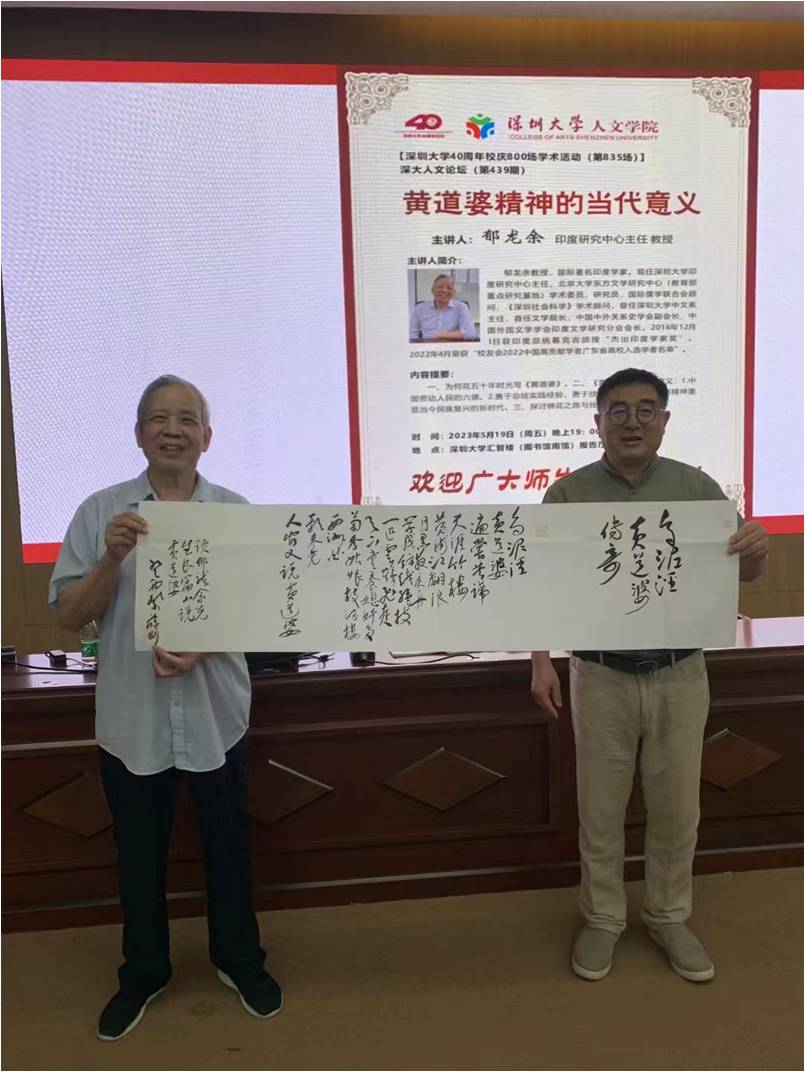 40
深圳大学 人文学院
COLLEGE OF ARTS SHENZHEN UNIVERSITY
【深圳大学40周年校庆800场学术活动（第835场）】
深大人文论坛（第439期）
黄道婆精神的当代意义
主讲人：郁龙余 印度研究中心主任 教授
主讲人简介：
郁龙余教授，国际著名印度学家。现任深圳大学印
度研究中心主任，北京大学东方文学研究中心（教育部
重点研究基地）学术委员、研究员，国际儒学联合会顾
问，《深圳社会科学》学术顾问，曾任深圳大学中文系
主任、首任文学院长，中国中外关系史学会副会长，中
国外国文学学会印度文学研究分会会长。2016年12月
1日获印度总统慕克吉颁授“杰出印度学家奖”。
2022年4月荣获“校友会2022中国高贡献学者广东省高校入选学者名单”。
内容提要：
一、为何花五十年时光写《黄道婆》。二、 义：1.中
国劳动人民的六德。2.勇于总结实践经验，勇于 精神重
显当今民族复兴的新时代。三、探讨棉花之路与丝
时 间：2023年5月19日（周五）晚上19：00
地 点：深圳大学汇智楼（图书馆南馆）报告厅
欢迎广大师生
乌泥泾
黄道婆
传奇
乌泥泾
黄道婆
天涯竹楼
黄浦江翻浪
人窗又说黄道婆
读郁龙余兄
生长篇小说
黄道婆